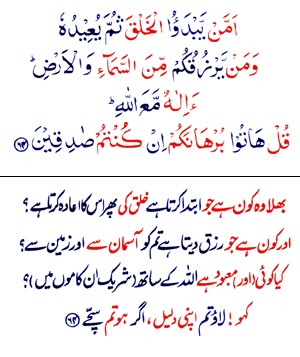 اَمَّنْ يَّبْدَؤُا الْخَلْقَ ثُمَّ يُعِيْدُهٗ
وَمَنْ يَّرْزُقُكُمْ مِّنَ السَّمَآءِ وَالْاَرْضِ ؕ
ءَاِلٰهٌ مَّعَ اللّٰهِ ؕ
قُلْ هَاتُوْا بُرْهَانَكُمْ اِنْ كُنْتُمْ صٰدِقِيْنَ ﴿۶۴﴾
بھلا وہ کون ہے جو ابتدا کرتا ہے خلق کی پھر اس کا اعادہ کرتا ہے؟
اور کون ہے جو رزق دیتا ہے تم کو آسمان سے اور زمین سے؟
کیا کوئی (اور) معبود ہے اللہ کے ساتھ (شریک ان کاموں میں)؟
کہو! لاؤ تم اپنی دلیل، اگر ہو تم سچّے ﴿۶۴﴾